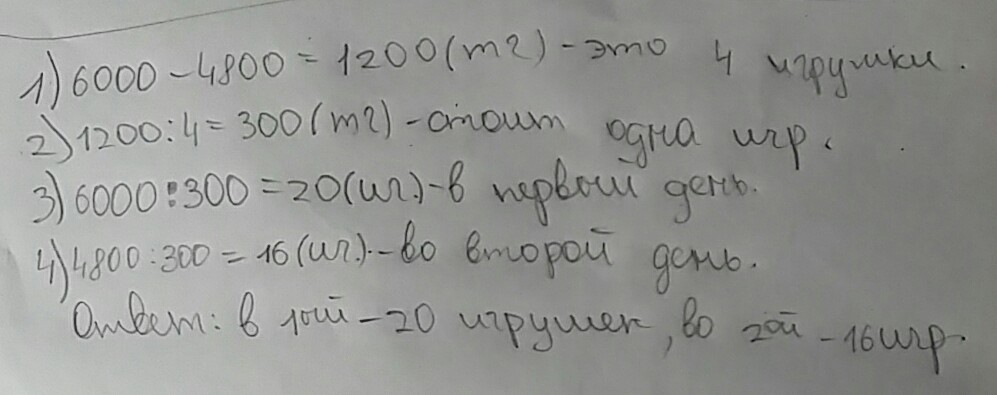 1) 6000 - 4800 = 1200 (тг) - это 4 игрушки.
2) 1200 : 4 = 300 (тг) - стоит одна игр.
3) 6000 : 300 = 20 (иг.) - в первый день.
4) 4800 : 300 = 16 (иг.) - во второй день.
Ответ: в 1ый - 20 игрушек, во 2ой - 16 игр.